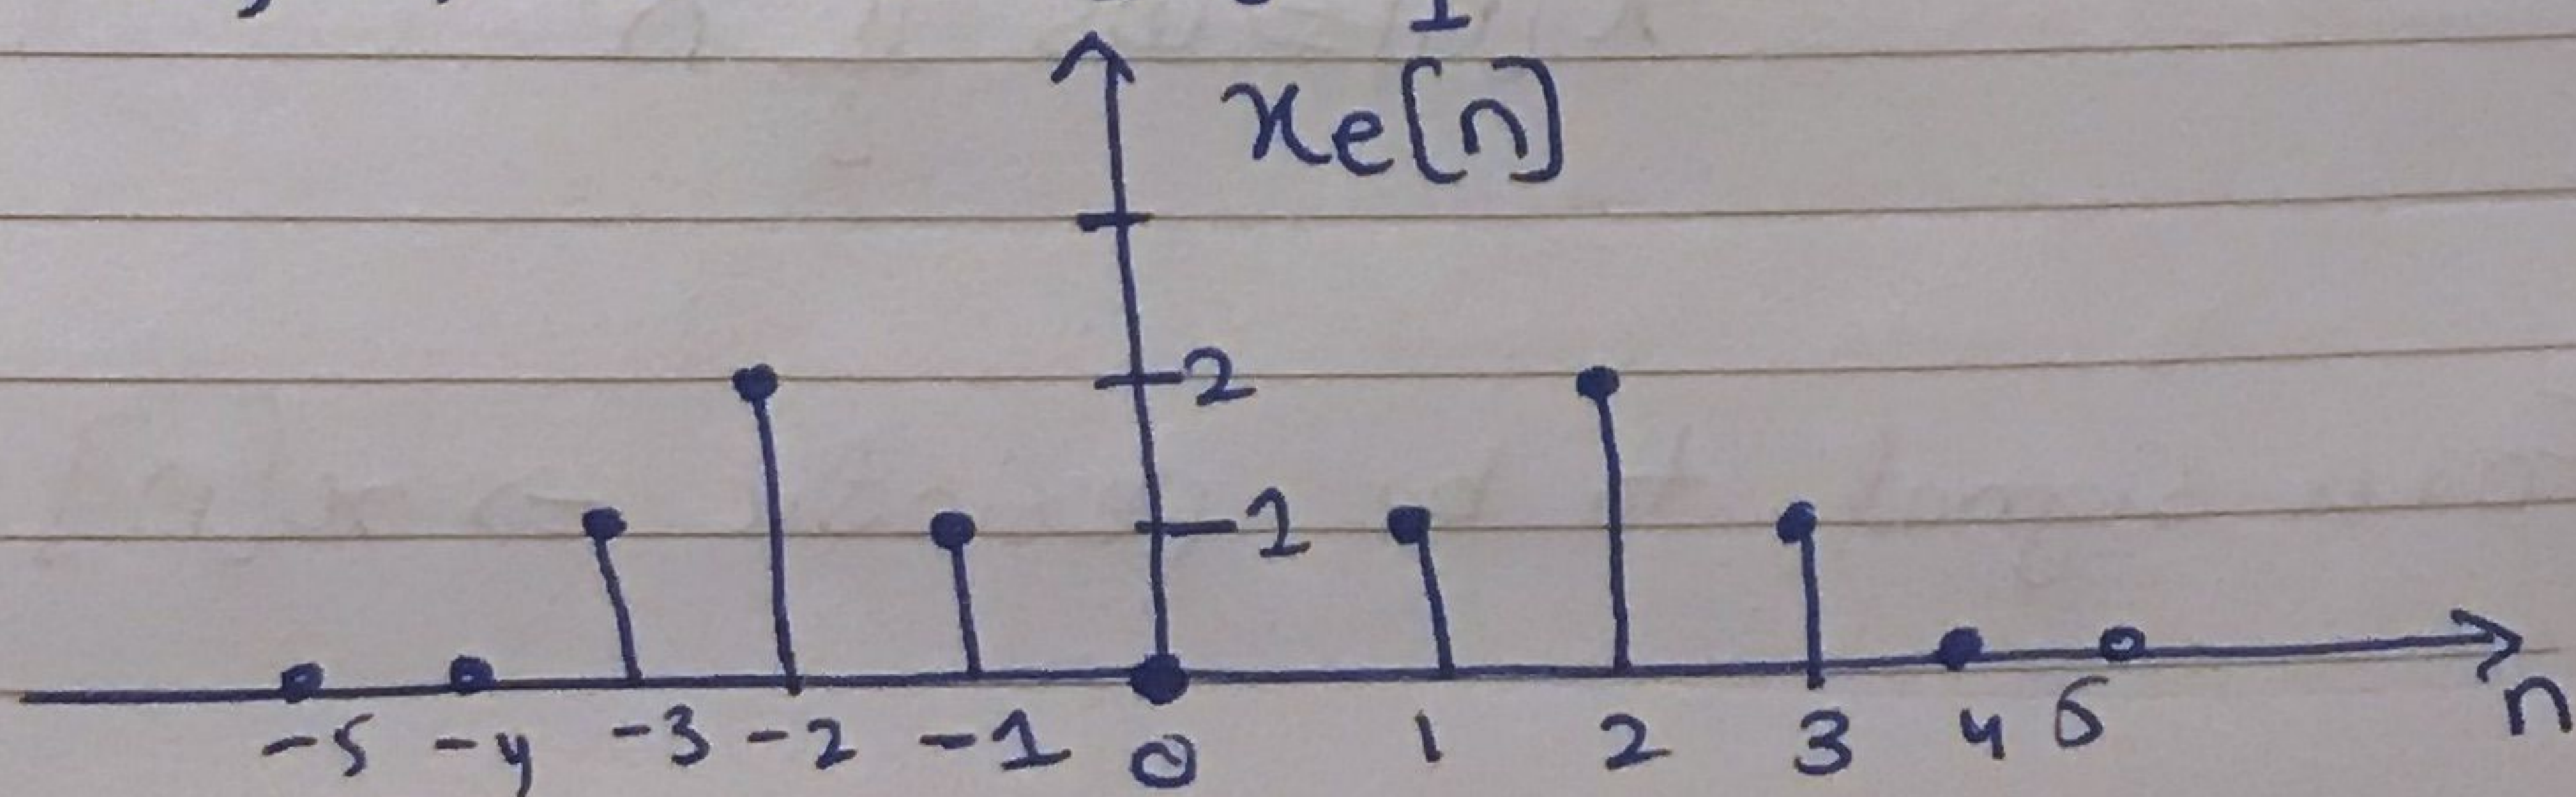 xe[n]
2
1
-5 -4 -3 -2 -1 0 1 2 3 4 5 n